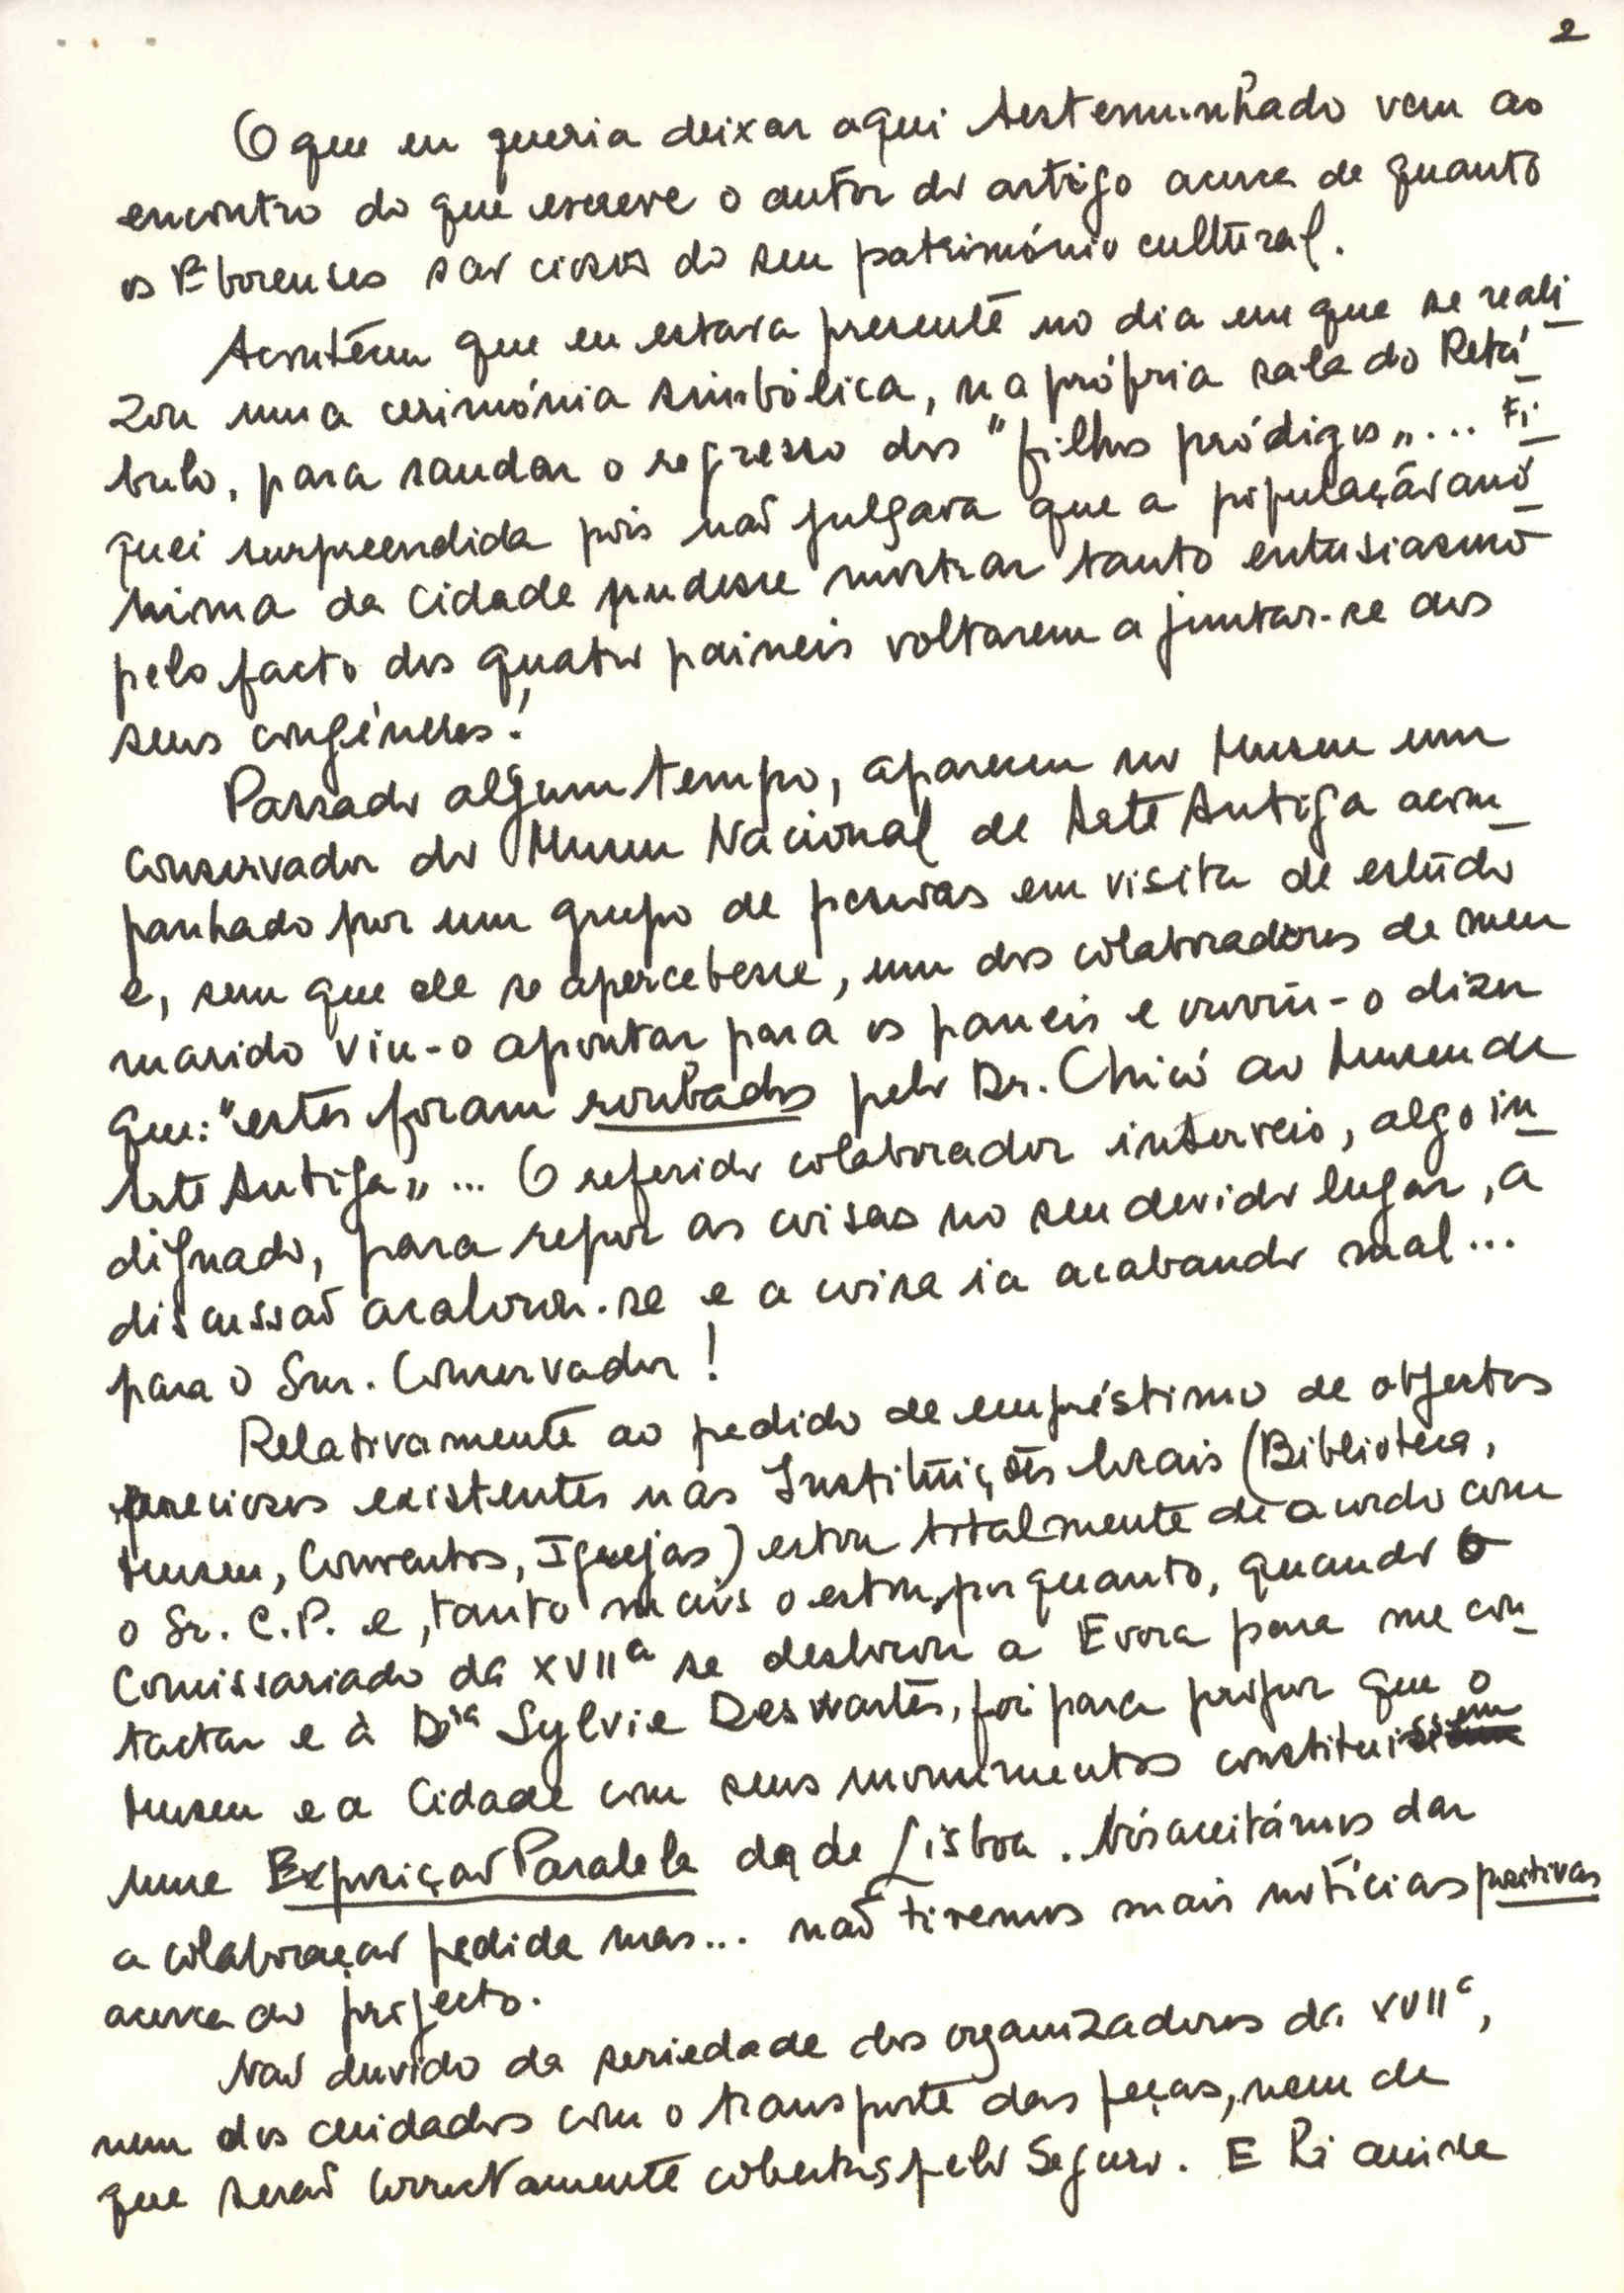 2
O que eu queria deixar aqui testemunhado vem ao
encontro do que escreve o autor do artigo acerca de quanto
os Eborenses são ciosos do seu património cultural.
Acontém que eu estava presente no dia em que se reali
zou uma cerimónia simbólica, na própria sala do Retá
bulo, para saudar o regresso dos "filhos pródigos"... Fi
quei surpreendida pois não julgava que a população anó
nima da Cidade pudesse mostrar tanto entusiasmo
pelo facto dos quatro paineis voltarem a juntar-se aos
seus congéneres!
Passado algum tempo, apareceu no Museu um
Conservador do Museu Nacional de Arte Antiga acom
panhado por um grupo de pessoas em visita de estudo
e, sem que ele se apercebesse, um dos colaboradores de meu
marido viu-o apontar para os paneis e ouviu-o dizer
que: "estes foram roubados pelo Dr. Chicó ao Museu de
Arte Antiga"... O referido colaborador interveio, algo in
dignado, para repor as coisas no seu devido lugar, a
discussão acalorou-se e a coisa ia acabando mal...
para o Snr. Conservador!
Relativamente ao pedido de empréstimo de objectos
preciosos existentes nas Instituições locais (Biblioteca,
Museu, Conventos, Igrejas) estou totalmente de acordo com
o Sr. C.P. e, tanto mais o estou, porquanto, quando o
Comissariado da XVIIª se deslocou a Evora para me con
tactar e à Drª Sylvie Deswartes, foi para propor que o
Museu e a Cidade com seus monumentos constituissem
uma Exposição Paralela da de Lisboa. Nós aceitámos dar
a colaboração pedida mas... não tivemos mais notícias positivas
acerca do projecto.
Não duvido da seriedade dos organizadores da XVIIª,
nem dos cuidados com o transporte das peças, nem de
que serão correctamente cobertas pelo Seguro. E Li ainda